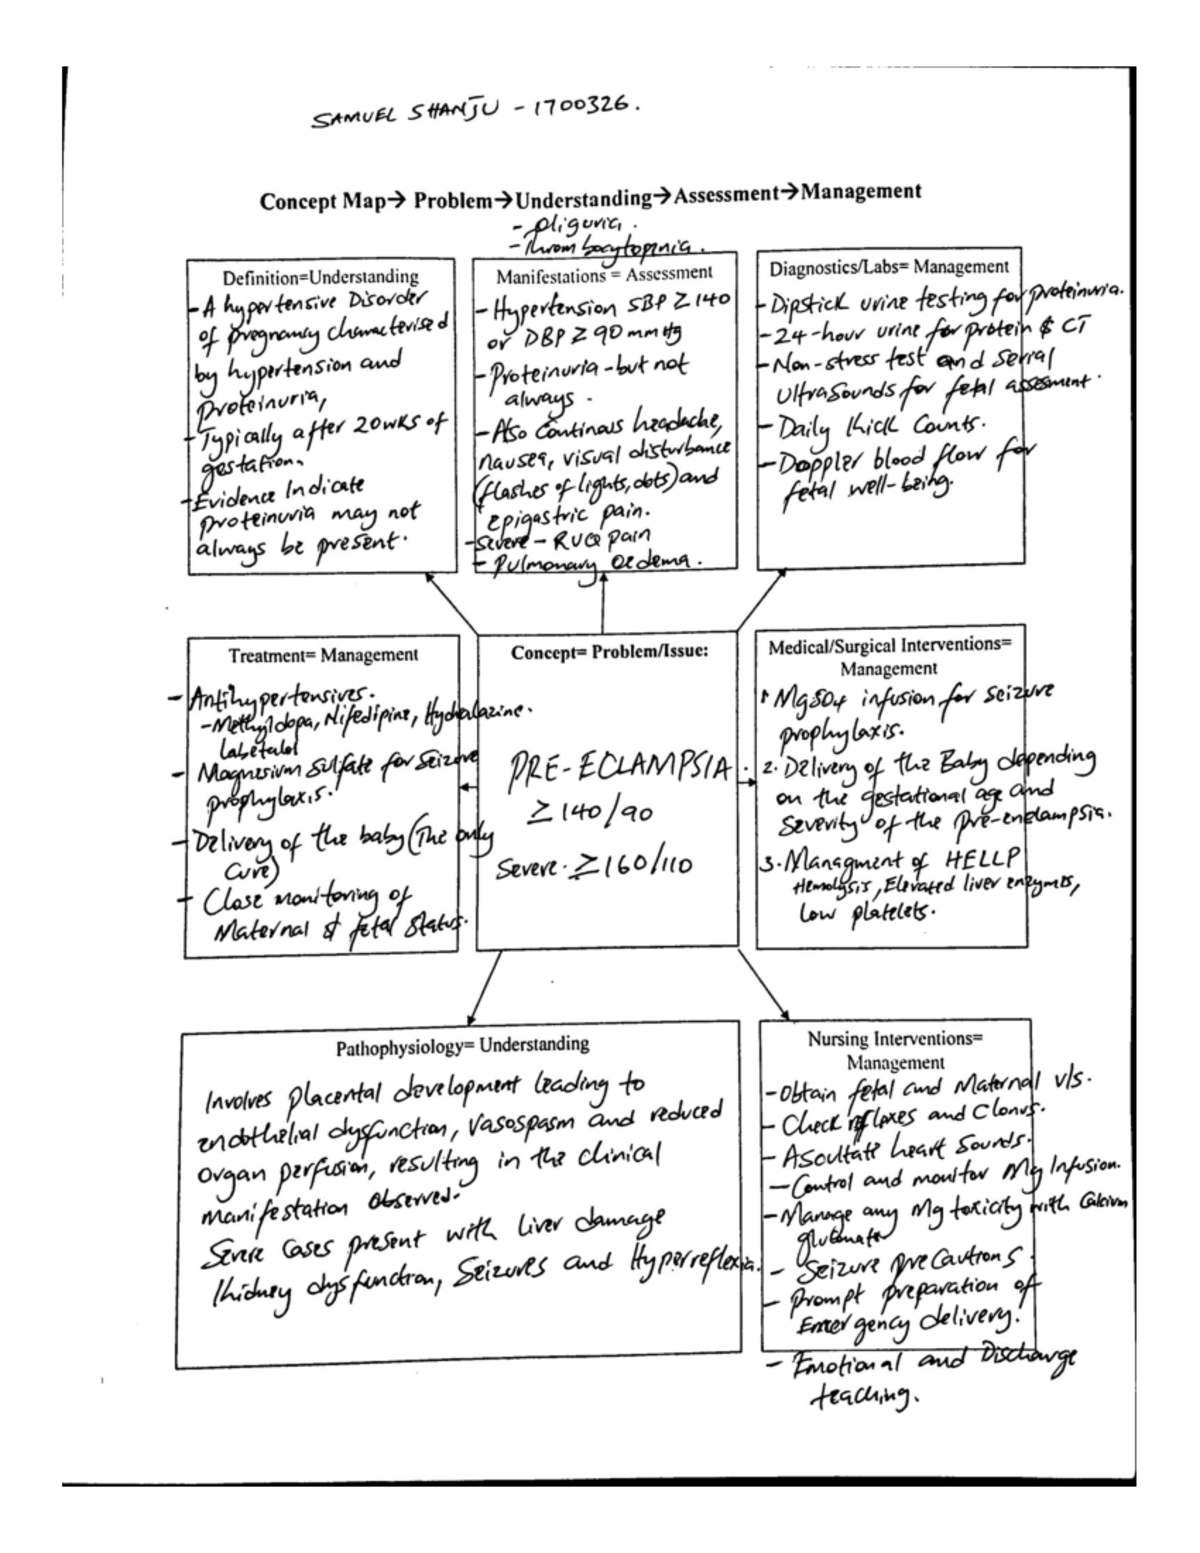 SAMUEL SHANJU - 1700326.
Concept Map→ Problem→Understanding→Assessment→Management
- Oliguria.
- Thrombocytopinia.
Definition=Understanding
- A hypertensive Disorder
of pregnancy characterised
by hypertension and
proteinuria,
- Typically after 20wks of
gestation.
- Evidence Indicate
proteinuria may not
always be present.
Manifestations = Assessment
- Hypertension SBP ≥ 140
or DBP ≥ 90 mmHg
- Proteinuria - but not
always.
- Also Continous headache,
nausea, visual disturbance
(flashes of lights, dots) and
epigastric pain.
- Severe - RUQ pain
- Pulmonary Oedema.
Diagnostics/Labs= Management
- Dipstick urine testing for proteinuria.
- 24-hour urine for protein & CT
- Non-stress test and Serial
Ultrasounds for fetal assesment.
- Daily Kick Counts.
- Doppler blood flow for
fetal well-being.
Treatment= Management
- Antihypertensives.
- Methyldopa, Nifedipine, Hydralazine.
Labetalol
- Magnesium Sulfate for Seizure
prophylaxis.
- Delivery of the baby (The only
Cure)
- Close monitoring of
Maternal & fetal Status.
Concept= Problem/Issue:
PRE-ECLAMPSIA.
≥ 140/90
Severe. ≥ 160/110
Medical/Surgical Interventions=
Management
1 MgSO4 infusion for Seizure
prophylaxis.
2. Delivery of the Baby depending
on the gestational age and
Severity of the pre-enclampsia.
3. Managment of HELLP
Hemolysis, Elevated liver enzymes,
Low platelets.
Pathophysiology= Understanding
Involves placental development leading to
endothelial dysfunction, Vasospasm and reduced
Organ perfusion, resulting in the clinical
manifestation observed.
Severe Cases present with liver damage
Kidney dysfunction, Seizures and Hyperreflexia.
Nursing Interventions=
Management
- Obtain fetal and Maternal v/s.
- Check reflexes and Clonus.
- Ascultate heart Sounds.
- Control and monitor Mg Infusion.
- Manage any Mg toxicity with Calcium
glutonate
- Seizure precautions.
- Prompt preparation of
Emergency delivery.
- Emotional and Discharge
teaching.